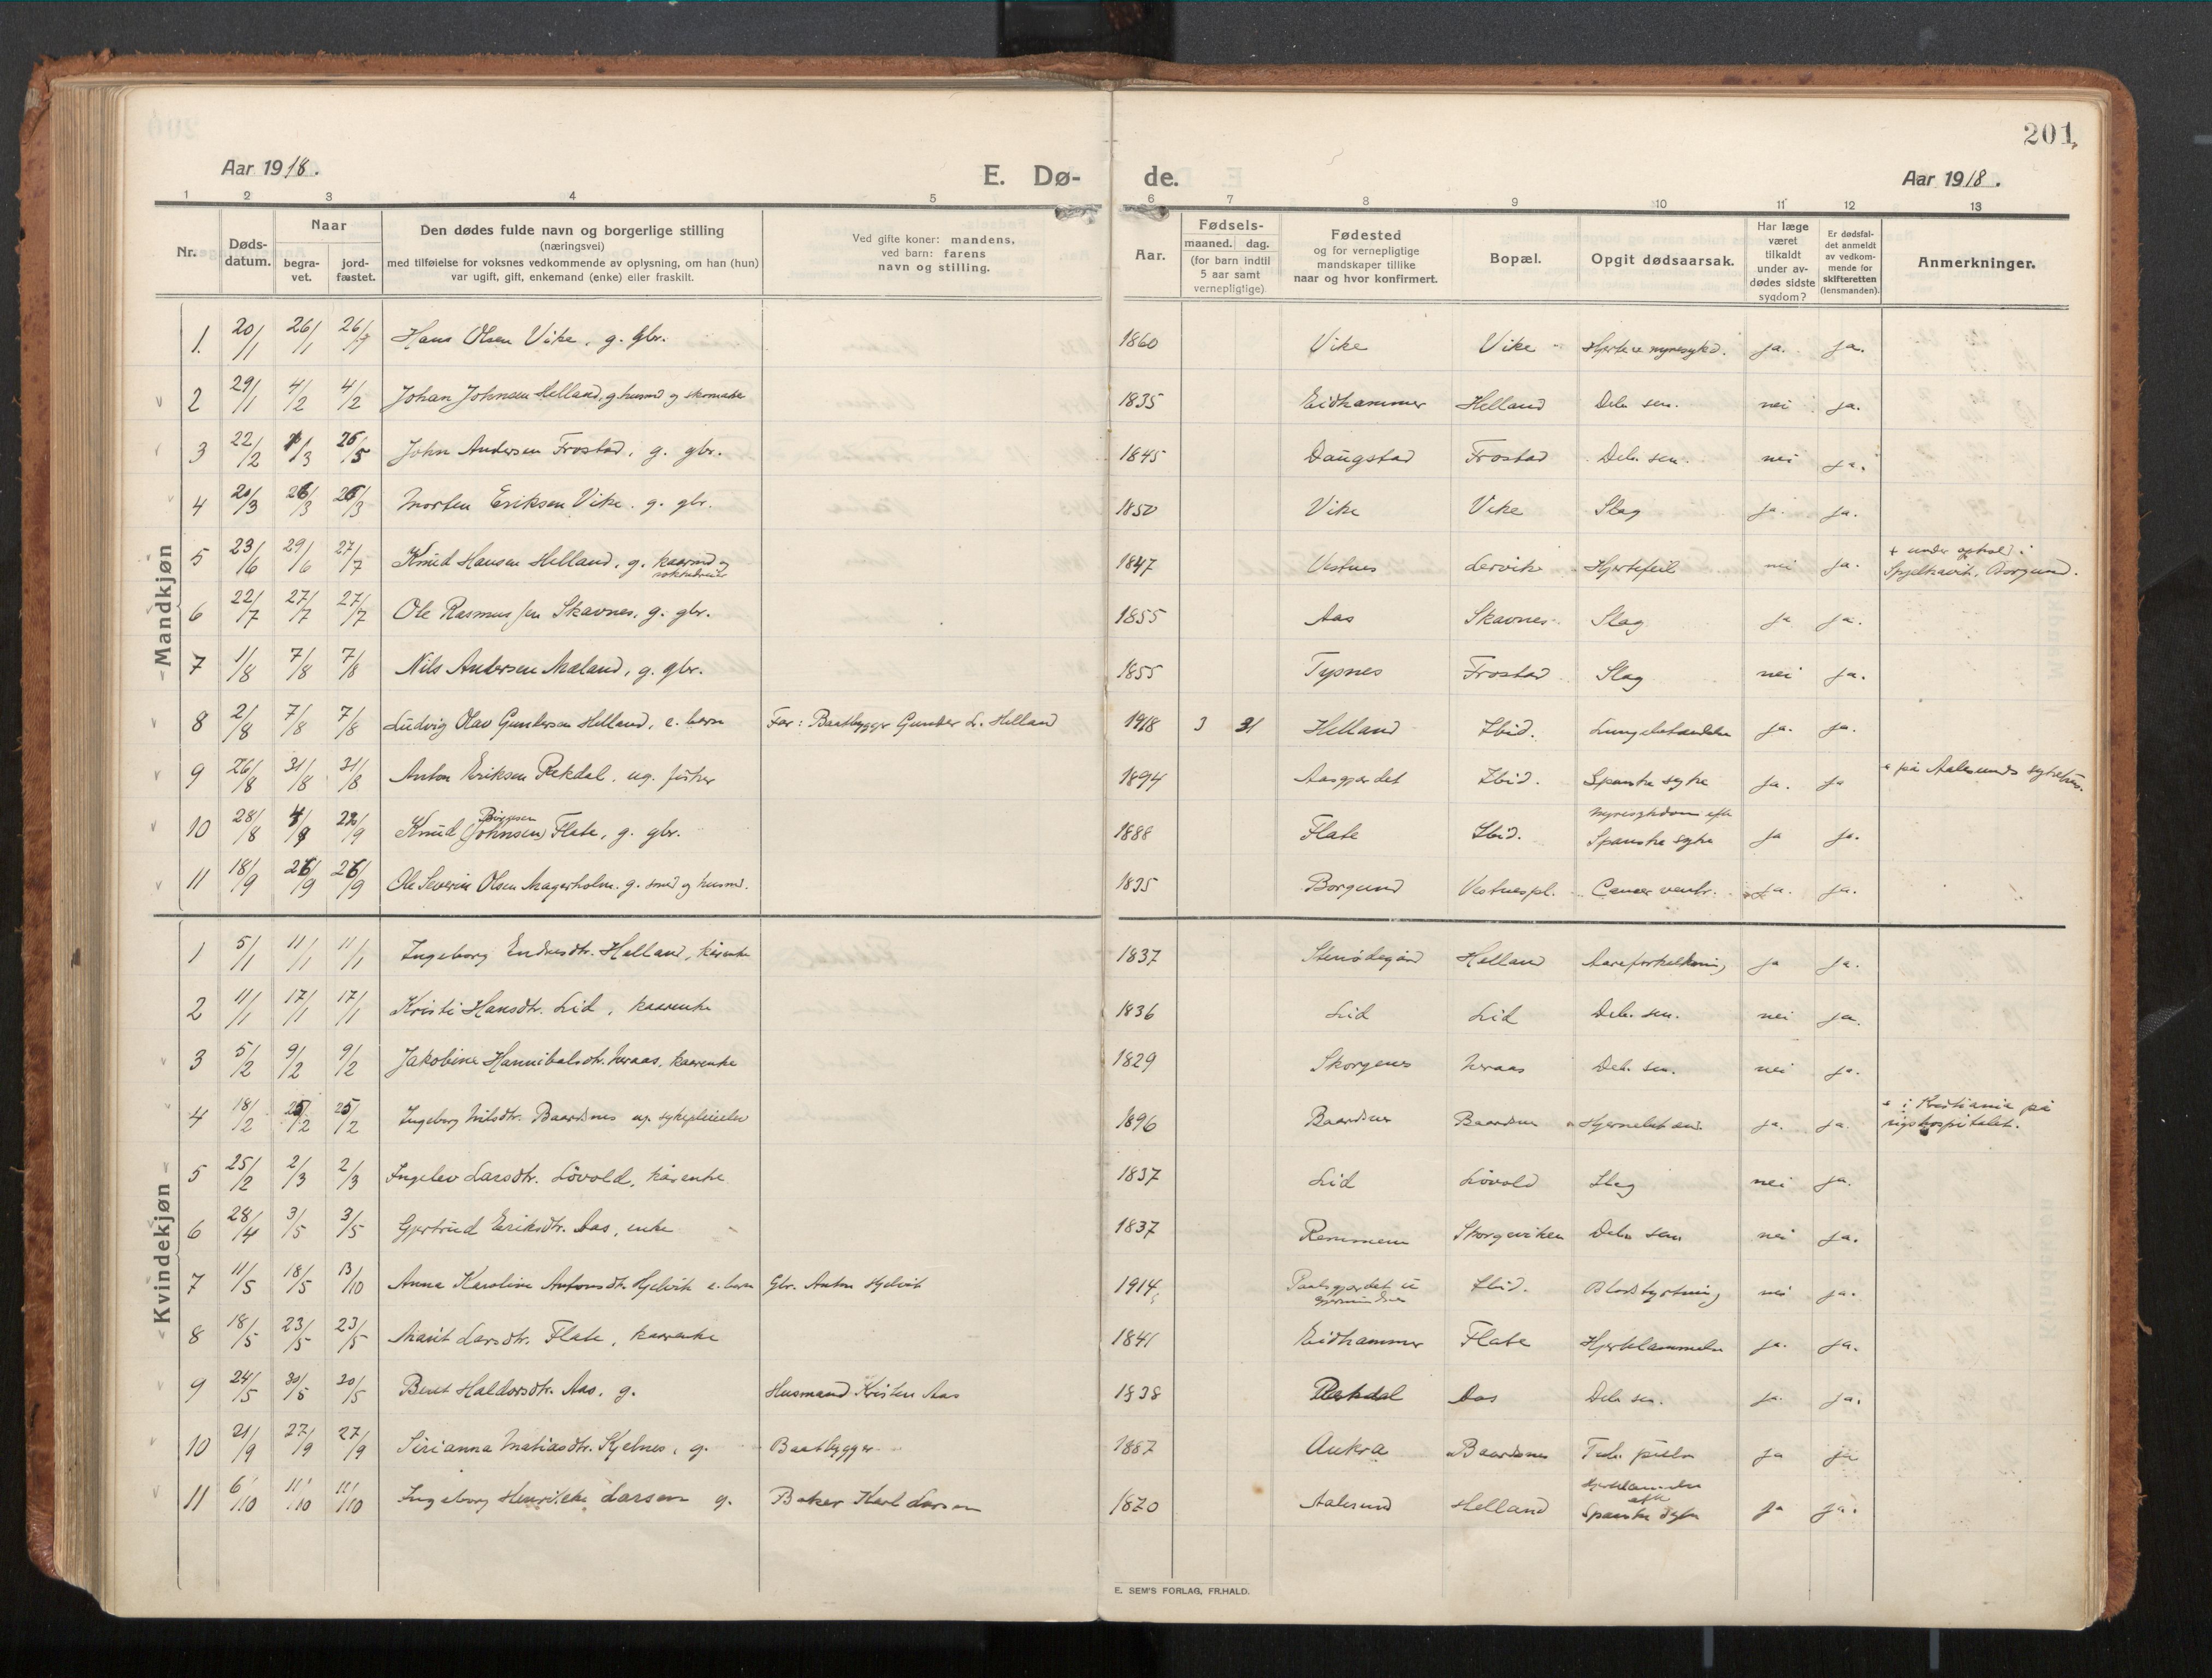 201
Aar 1918.
E. Dø-
de.
Aar 1918.
1 2 3 4 5 6 7 8 9 10 11 12 13
Nr.
Døds-
datum.
Naar
begra-
vet.
jord-
fæstet.
Den dødes fulde navn og borgerlige stilling
(næringsvei)
med tilføielse for voksnes vedkommende av oplysning, om han (hun)
var ugift, gift, enkemand (enke) eller fraskilt.
Ved gifte koner: mandens,
ved barn: farens
navn og stilling.
Aar.
Fødsels-
maaned. dag.
(for barn indtil
5 aar samt
vernepligtige)
Fødested
og for vernepligtige
mandskaper tillike
naar og hvor konfirmert.
Bopæl.
Opgit dødsaarsak.
Har læge
været
tilkaldt
under av-
dødes sidste
sygdom?
Er dødsfal-
det anmeldt
av vedkom-
mende for
skifteretten
(lensmanden).
Anmerkninger.
Mandkjøn
1. 20/1 26/1 26/1 Hans Olsen Vike, g. gbr. 1860 Vike Vike Hjerte u nyresykd. ja. ja.
2 29/1 4/2 4/2 Johan Johnsen Helland, g husmd g skomaker 1835 Eidhammer Helland Deb. sen. nei ja.
3 22/2 1/3 25/5 John Andersen Frostad, g. gbr. 1845 Daugstad Frostad Deb. sen. nei ja.
4 20/3 26/3 26/3 Morten Eriksen Vike. g. gbr. 1850 Vike Vike Slag ja. ja.
5 23/6 29/6 27/7 Knud Hansen Helland, g. kaarmd og 1847 Vestnes Lervik Hjertefeil nei ja. + under ophold i
Spjelkavik, Borgund.
6 22/7 27/7 27/7 Ole Rasmussen Skavnes, g. gbr. 1855 Aas Skavnes Slag ja ja.
7 1/8 7/8 7/8 Nils Andersen Mæland, g. gbr. 1855 Tysnes Frostad Slag nei ja.
8 2/8 7/8 7/8 Ludvig Olav Gundersen Helland, e. barn Far: Baatbygger Gunder L. Helland 1918 3 31 Helland Ibid. Lungebetændelse ja. ja.
9 26/8 31/8 31/8 Anton Eriksen Rekdal, ug. fisker 1894 Aasgjærdet Ibid. Spanske syke ja. ja + på Aalesunds sykehus.
Birgersen
10 28/8 4/9 22/9 Knud (Johnsen) Flate, g. gbr. 1888 Flate Ibid. Nyresykdom efter
Spanske syke ja ja.
11 18/9 26/9 26/9 Ole Severin Olsen Magerholm. g. smed g husmd. 1835 Borgund Vestnespl. Cancer ventr. ja. ja.
Kvindekjøn
1 5/1 11/1 11/1 Ingeborg Endresdtr. Helland, kårenke 1837 Helland Aareforkalkning ja ja.
2 11/1 17/1 17/1 Kristi Hansdtr. Lid, kaarenke 1836 Lid Lid Deb. sen. nei ja.
3 5/2 9/2 9/2 Jakobine Hannibalsdtr. Neraas, kaarenke 1829 Skorgenes Neraas Deb. sen. nei ja.
4 18/2 25/2 25/2 Ingeborg Nilsdtr. Baardsnes ug. sykepleierske 1896 Baardsnes Baardsnes Hjernebetænd. ja. ja. + i Kristiania på
rigshospitalet.
5 25/2 2/3 2/3 Ingelev Larsdtr. Lövold, kårenke 1837 Lid Lövold Slag nei ja.
6 28/4 3/5 3/5 Gjertrud Eriksdtr. Aas, enke 1837 Remmem Skorgeviken Deb. sen nei ja.
7 11/5 18/5 13/10 Anna Karoline Antonsdtr. Hjelvik e. barn Gbr. Anton Hjelvik 1914 Ibid. Blodstyrtning nei ja.
8 18/5 23/5 23/5 Marit Larsdtr. Flate, kaarenke 1841 Eidhammer Flate Hjertelammelse ja. ja.
9 24/5 30/5 30/5 Beret Haldorsdtr. Aas, g. Husmand Kristen Aas 1838 Rekdal Aas Deb sen. ja. ja.
10 21/9 27/9 27/9 Sirianna Matiasdtr. Kjelnes, g. Baatbygger 1887 Aukra Baardsnes Tub. pulm ja ja
11 6/10 11/10 11/10 Ingeborg Henrikke Larsen g. Baker Karl Larsen 1870 Aalesund Helland Hjertelammelse
efter
Spanske syke ja ja.
E. SEM'S FORLAG, FR.HALD.